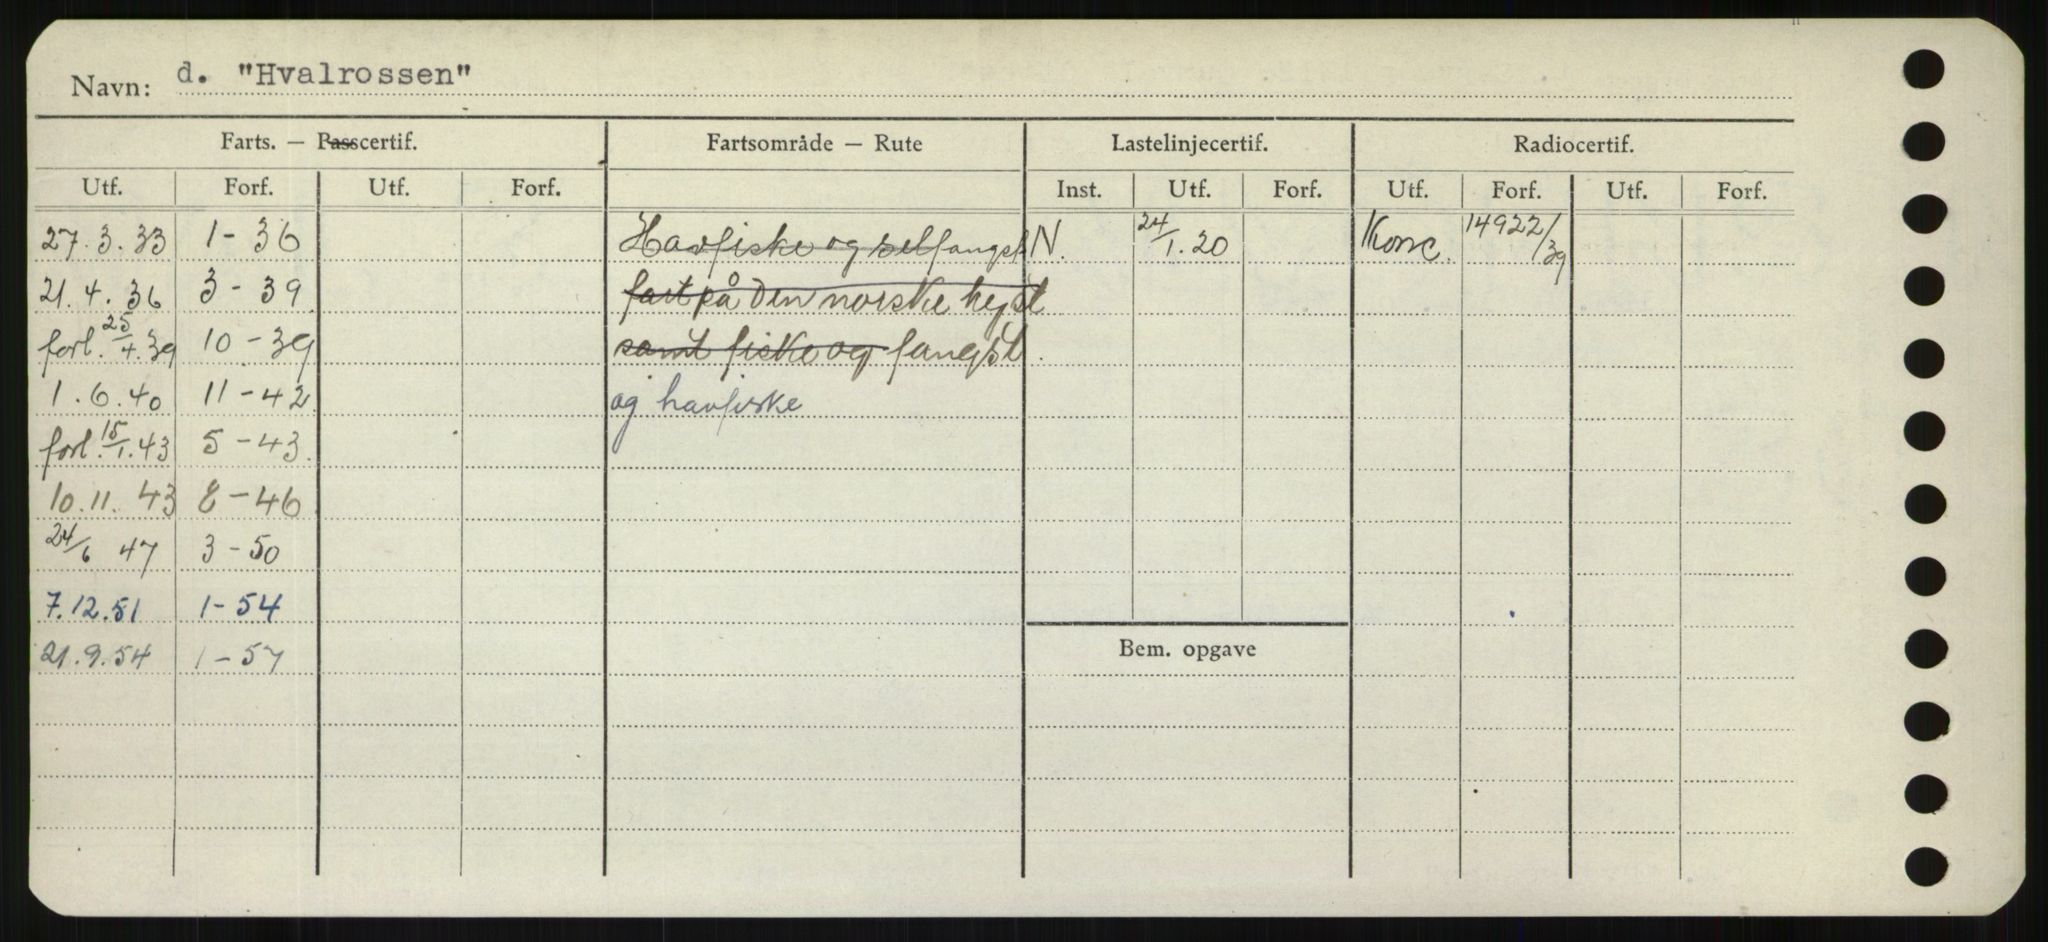 Navn: d. "Hvalrossen"
Farts. — Passcertif. Fartsområde — Rute Lastelinjecertif. Radiocertif.
Utf. Forf. Utf. Forf. Inst. Utf. Forf. Utf. Forf. Utf. Forf.
27.3.33 1-36 Havfiske og selfangst N. 24/1.20 Konc. 14922/39
21.4.36 3-39 fart på den norske kyst
forl. 25/4.39 10-39 samt fiske og fangst.
1.6.40 11-42 og havfiske
forl. 15/1.43 5-43.
10.11.43 8-46
24/6 47 3-50
7.12.51 1-54
21.9.54 1-57
Bem. opgave